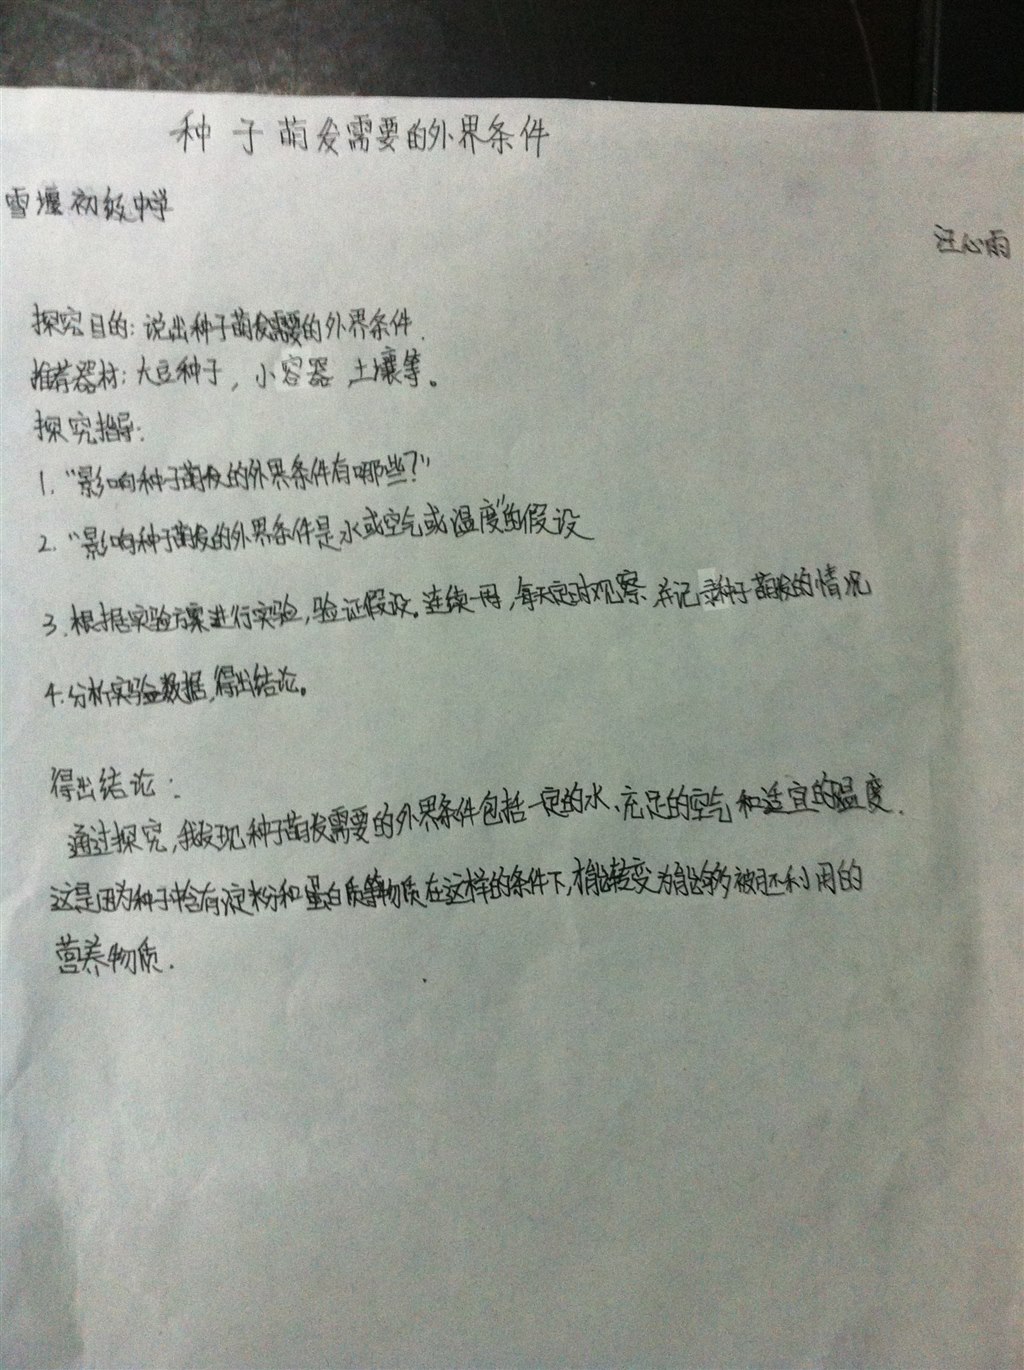 种子萌发需要的外界条件
雪堰初级中学
汪心雨
探究目的：说出种子萌发需要的外界条件.
推荐器材：大豆种子，小容器，土壤等。
探究指导：
1. “影响种子萌发的外界条件有哪些？”
2. “影响种子萌发的外界条件是水或空气或温度”的假设
3. 根据实验方案进行实验，验证假设。连续一周，每天定时观察、并记录种子萌发的情况
4. 分析实验数据，得出结论。
得出结论：
通过探究，我发现种子萌发需要的外界条件包括一定的水、充足的空气和适宜的温度.
这是因为种子中含有淀粉和蛋白质等物质在这样的条件下，才能转变为能够被胚利用的
营养物质.